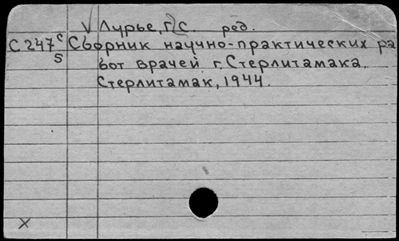 √ Лурье, Г. С. ред.
С247с Сборник научно-практических ра
5 бот врачей г. Стерлитамака.
Стерлитамак, 1944.
X